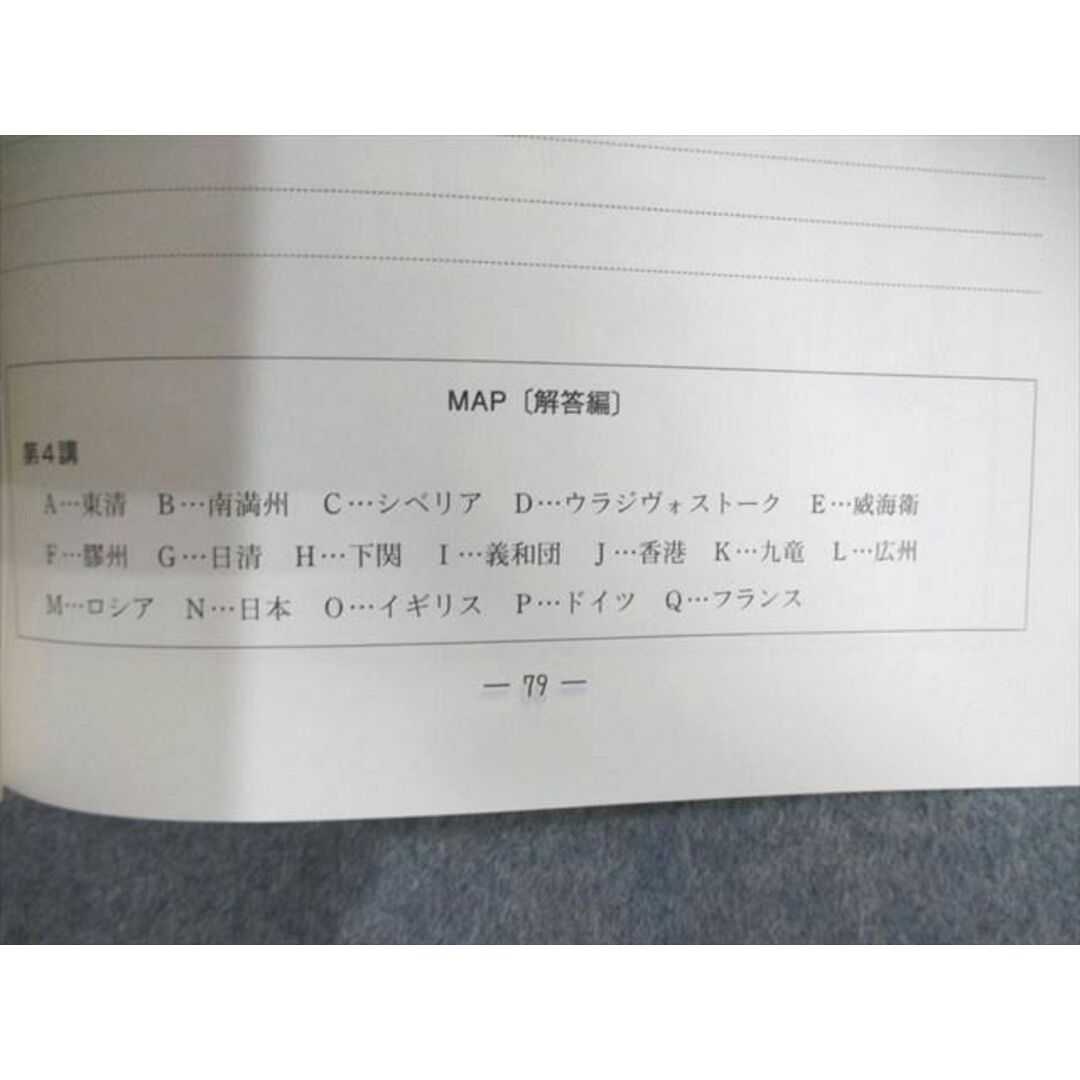 MAP〔解答編〕
第4講
A…東清 B…南満州 C…シベリア D…ウラジヴォストーク E…威海衛
F…膠州 G…日清 H…下関 I…義和団 J…香港 K…九竜 L…広州
M…ロシア N…日本 O…イギリス P…ドイツ Q…フランス
— 79 —